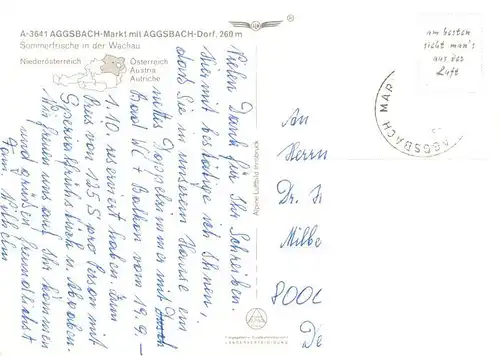 A-3641 AGGSBACH-Markt mit AGGSBACH-Dorf, 260 m
Sommerfrische in der Wachau
Niederösterreich
Österreich
Austria
Autriche
Vielen Dank für Ihr Schreiben.
Hiermit bestätige ich Ihnen,
daß Sie in unserem Hause ein
nettes Doppelzimmer mit
Bad WC + Balkon vom 19.9.-
1.10. reserviert haben. Zum
Preis von 125 S pro Person mit
Frühstück u. Abdn.
Wir freuen uns auf Ihr kommen
und grüßen freundlichst
Fam. Wilhelm
Alpine Luftbild Innsbruck
am besten
sieht man's
aus der
Luft
AGGSBACH MAR
An
Herrn
Dr.
Milbe
8000
De